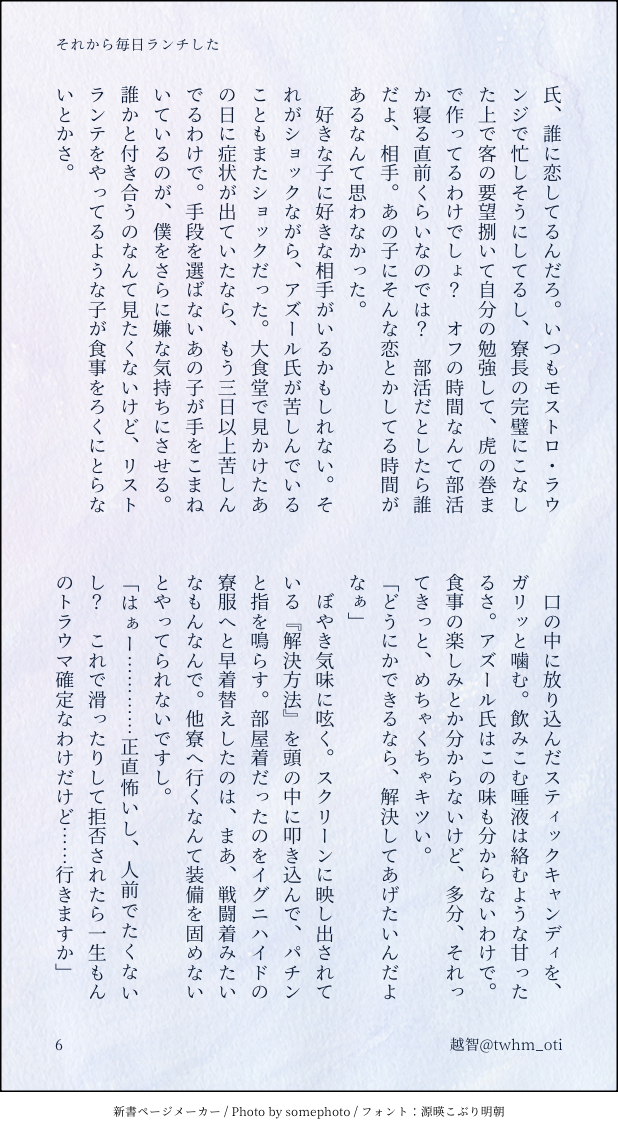 それから毎日ランチした
氏、誰に恋してるんだろ。いつもモストロ・ラウ
ンジで忙しそうにしてるし、寮長の完璧にこなし
た上で客の要望捌いて自分の勉強して、虎の巻ま
で作ってるわけでしょ？　オフの時間なんて部活
か寝る直前くらいなのでは？　部活だとしたら誰
だよ、相手。あの子にそんな恋とかしてる時間が
あるなんて思わなかった。
　好きな子に好きな相手がいるかもしれない。そ
れがショックながら、アズール氏が苦しんでいる
こともまたショックだった。大食堂で見かけたあ
の日に症状が出ていたなら、もう三日以上苦しん
でるわけで。手段を選ばないあの子が手をこまね
いているのが、僕をさらに嫌な気持ちにさせる。
誰かと付き合うのなんて見たくないけど、リスト
ランテをやってるような子が食事をろくにとらな
いとかさ。
　口の中に放り込んだスティックキャンディを、
ガリッと噛む。飲みこむ唾液は絡むような甘った
るさ。アズール氏はこの味も分からないわけで。
食事の楽しみとか分からないけど、多分、それっ
てきっと、めちゃくちゃキツい。
「どうにかできるなら、解決してあげたいんだよ
なぁ」
　ぼやき気味に呟く。スクリーンに映し出されて
いる『解決方法』を頭の中に叩き込んで、パチン
と指を鳴らす。部屋着だったのをイグニハイドの
寮服へと早着替えしたのは、まあ、戦闘着みたい
なもんなんで。他寮へ行くなんて装備を固めない
とやってられないですし。
「はぁー…………正直怖いし、人前でたくない
し？　これで滑ったりして拒否されたら一生もん
のトラウマ確定なわけだけど……行きますか」
6
越智@twhm_oti
新書ページメーカー / Photo by somephoto / フォント：源暎こぶり明朝